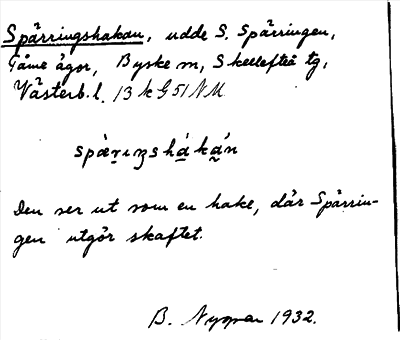 Spärringshakan, udde S. Spärringen,
Tåme ågor, Byske sn, Skellefteå tg,
Västerb. l. 13 k G 51 NM
Den ser ut som en hake, där Spärrin-
gen utgör skaftet.
B. 1932.